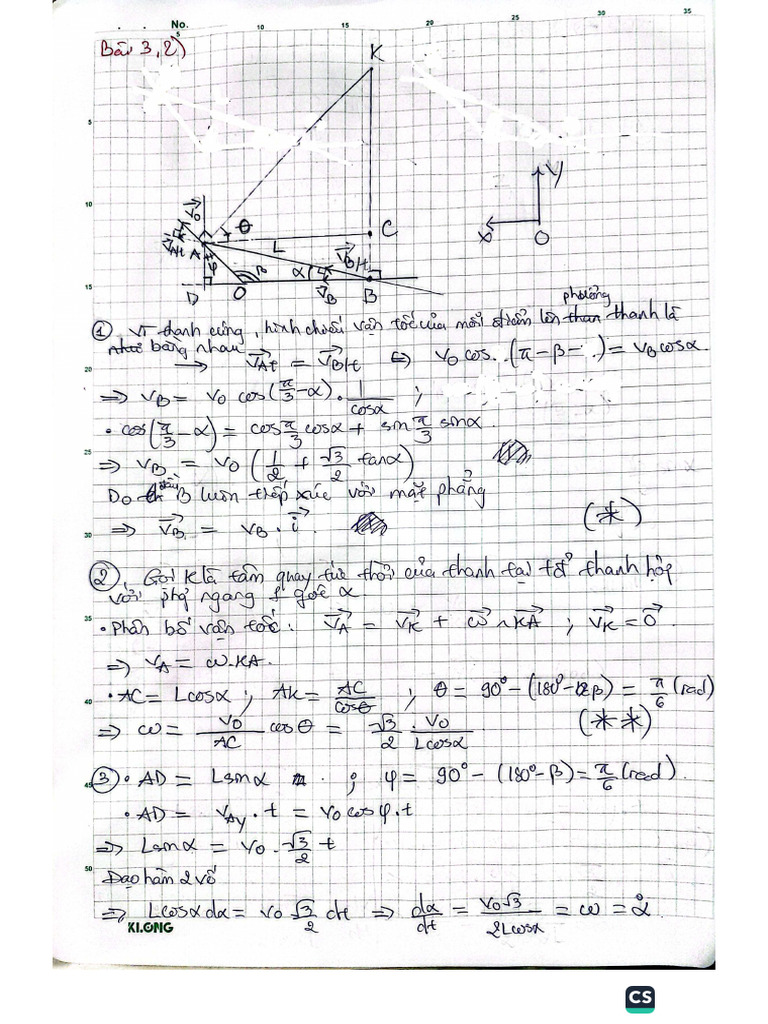 No.
5 10 15 20 25 30 35
Bài 3, 2)
K
5
y
10
V₀ θ C x O
V_At A L V_B/t
φ β α
15 D O V_B B
phương
① Vì thanh cứng, hình chiếu vận tốc của mỗi điểm lên thanh là
như bằng nhau
20 → V_At = V_B/t ⇔ v₀ cos (π-β- ) = v_B cosα
⇒ v_B = v₀ cos(π/3 - α) · 1/cosα ;
• cos(π/3 - α) = cos π/3 cosα + sin π/3 sinα
25 ⇒ v_B = v₀ (1/2 + √3/2 tanα)
Do đầu B luôn tiếp xúc với mặt phẳng
30 ⇒ V_B = v_B · i (*)
② Gọi K là tâm quay tức thời của thanh tại tđ thanh hợp
với phg ngang 1 góc α
35 • Phân bố vận tốc: V_A = V_K + ω ∧ KA ; V_K = 0
⇒ v_A = ω·KA
40 • AC = Lcosα ; AK = AC/cosθ ; θ = 90° - (180° - β) = π/6 (rad)
⇒ ω = v₀/AC cosθ = √3/2 · v₀/Lcosα (**)
45 ③ • AD = Lsinα ; φ = 90° - (180° - β) = π/6 (rad)
• AD = v_Ay · t = v₀ cosφ · t
⇒ Lsinα = v₀ · √3/2 t
50 Đạo hàm 2 vế
⇒ Lcosα dα = v₀ √3/2 dt ⇒ dα/dt = v₀√3/2Lcosα = ω = α̇
KLONG
CS